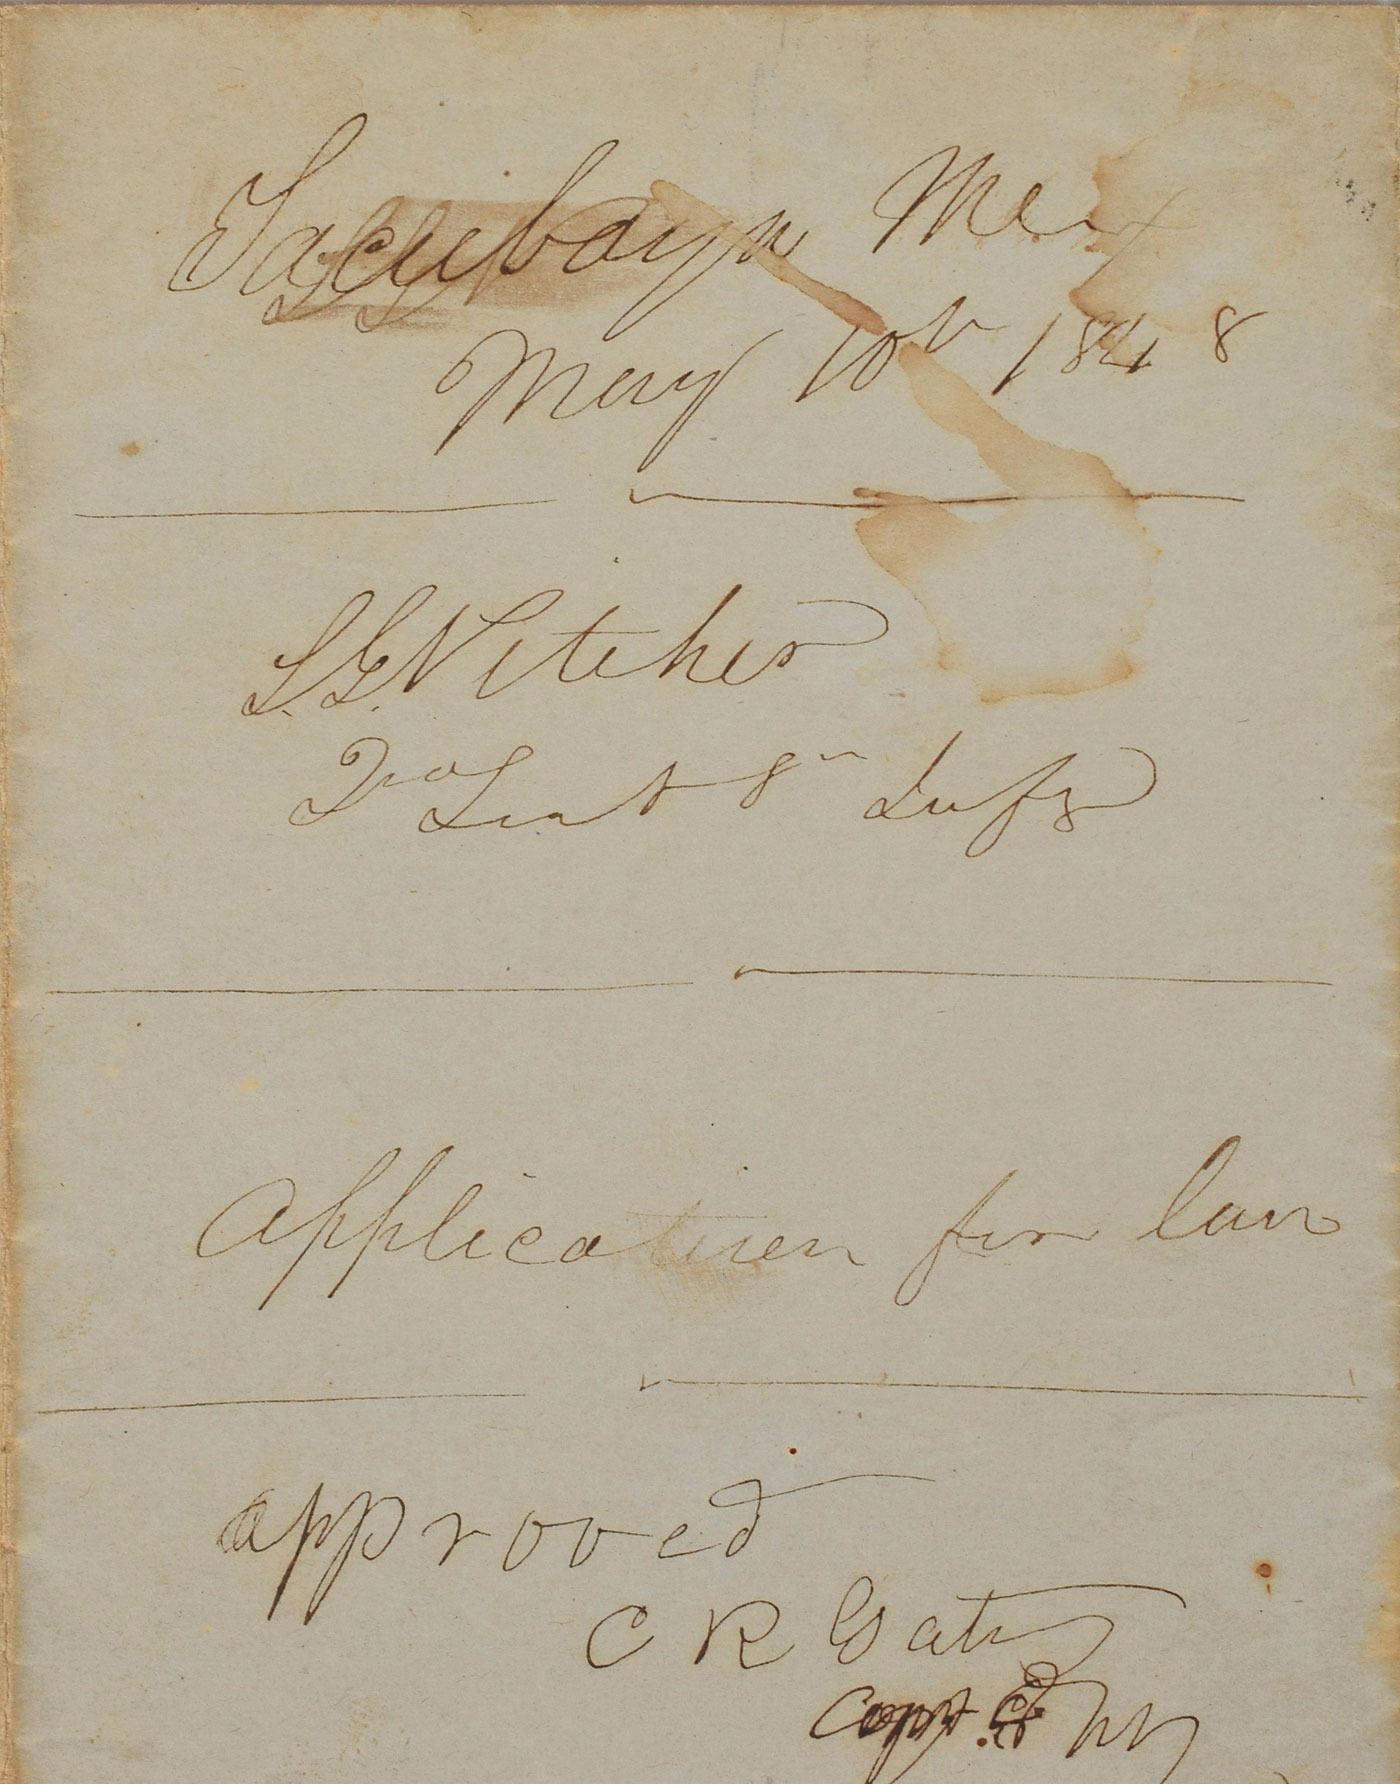 Tacubaya Mex
May 10th 1848
L. G. Vitcher
2nd Lieut 8th Infy
Application for leave
approved
C R Gates
Capt 8